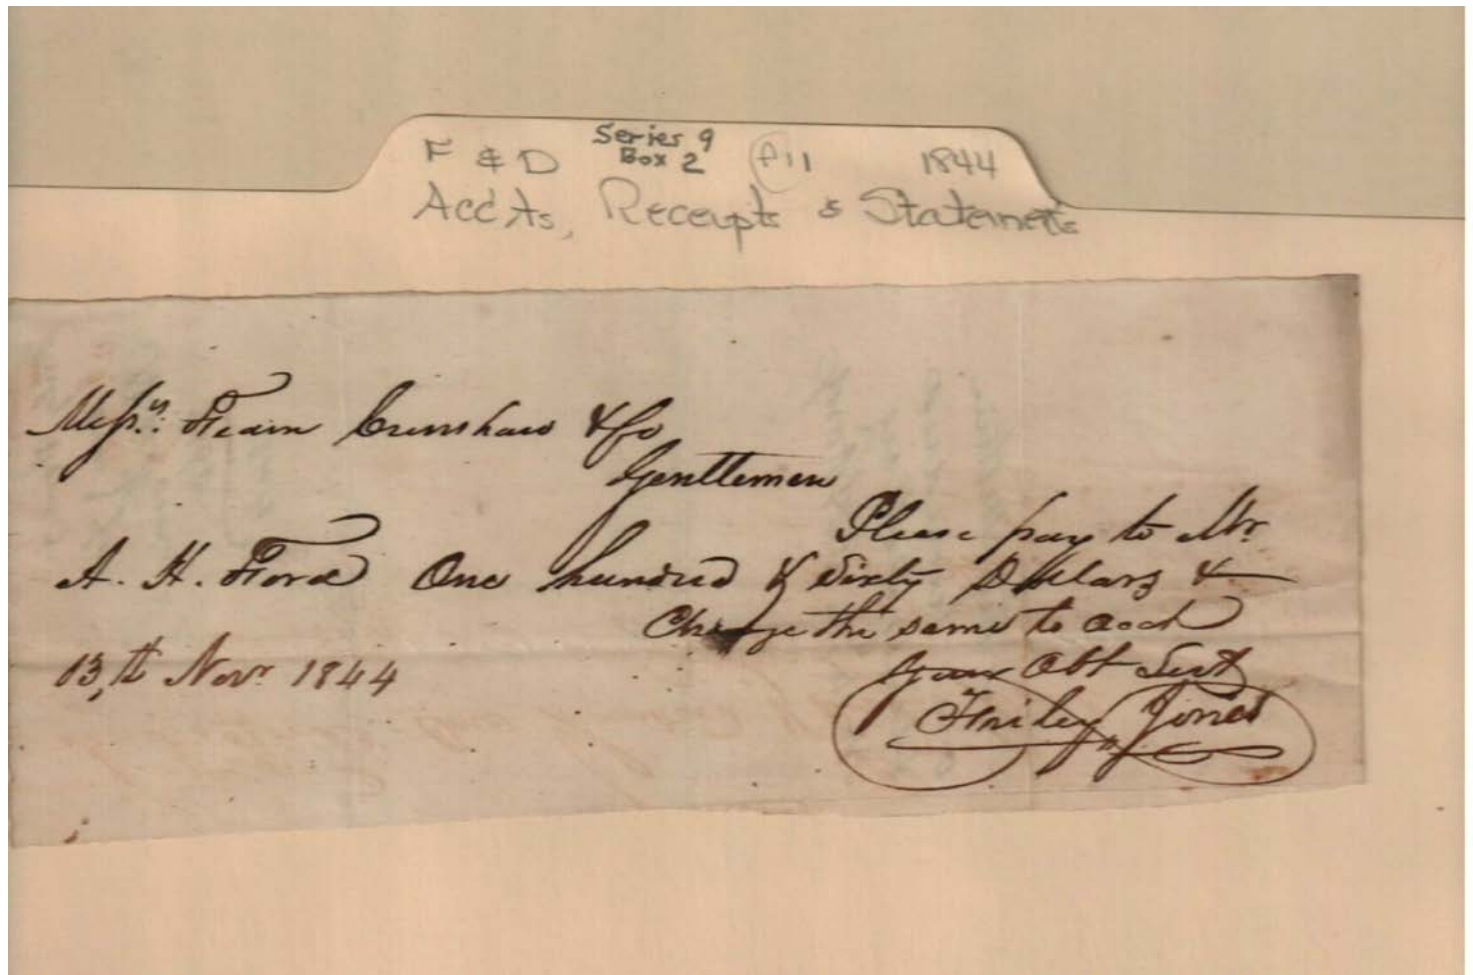 F & D Series 9 Box 2 A11 1844
Acc'ts, Receipts & Statements
Messrs. Fearn Crenshaw & Co
Gentlemen
Please pay to Mr
A. H. Ford One hundred & Sixty Dollars &
Charge the same to acct
13th Novr 1844
your Obt Servt
Finley Jones